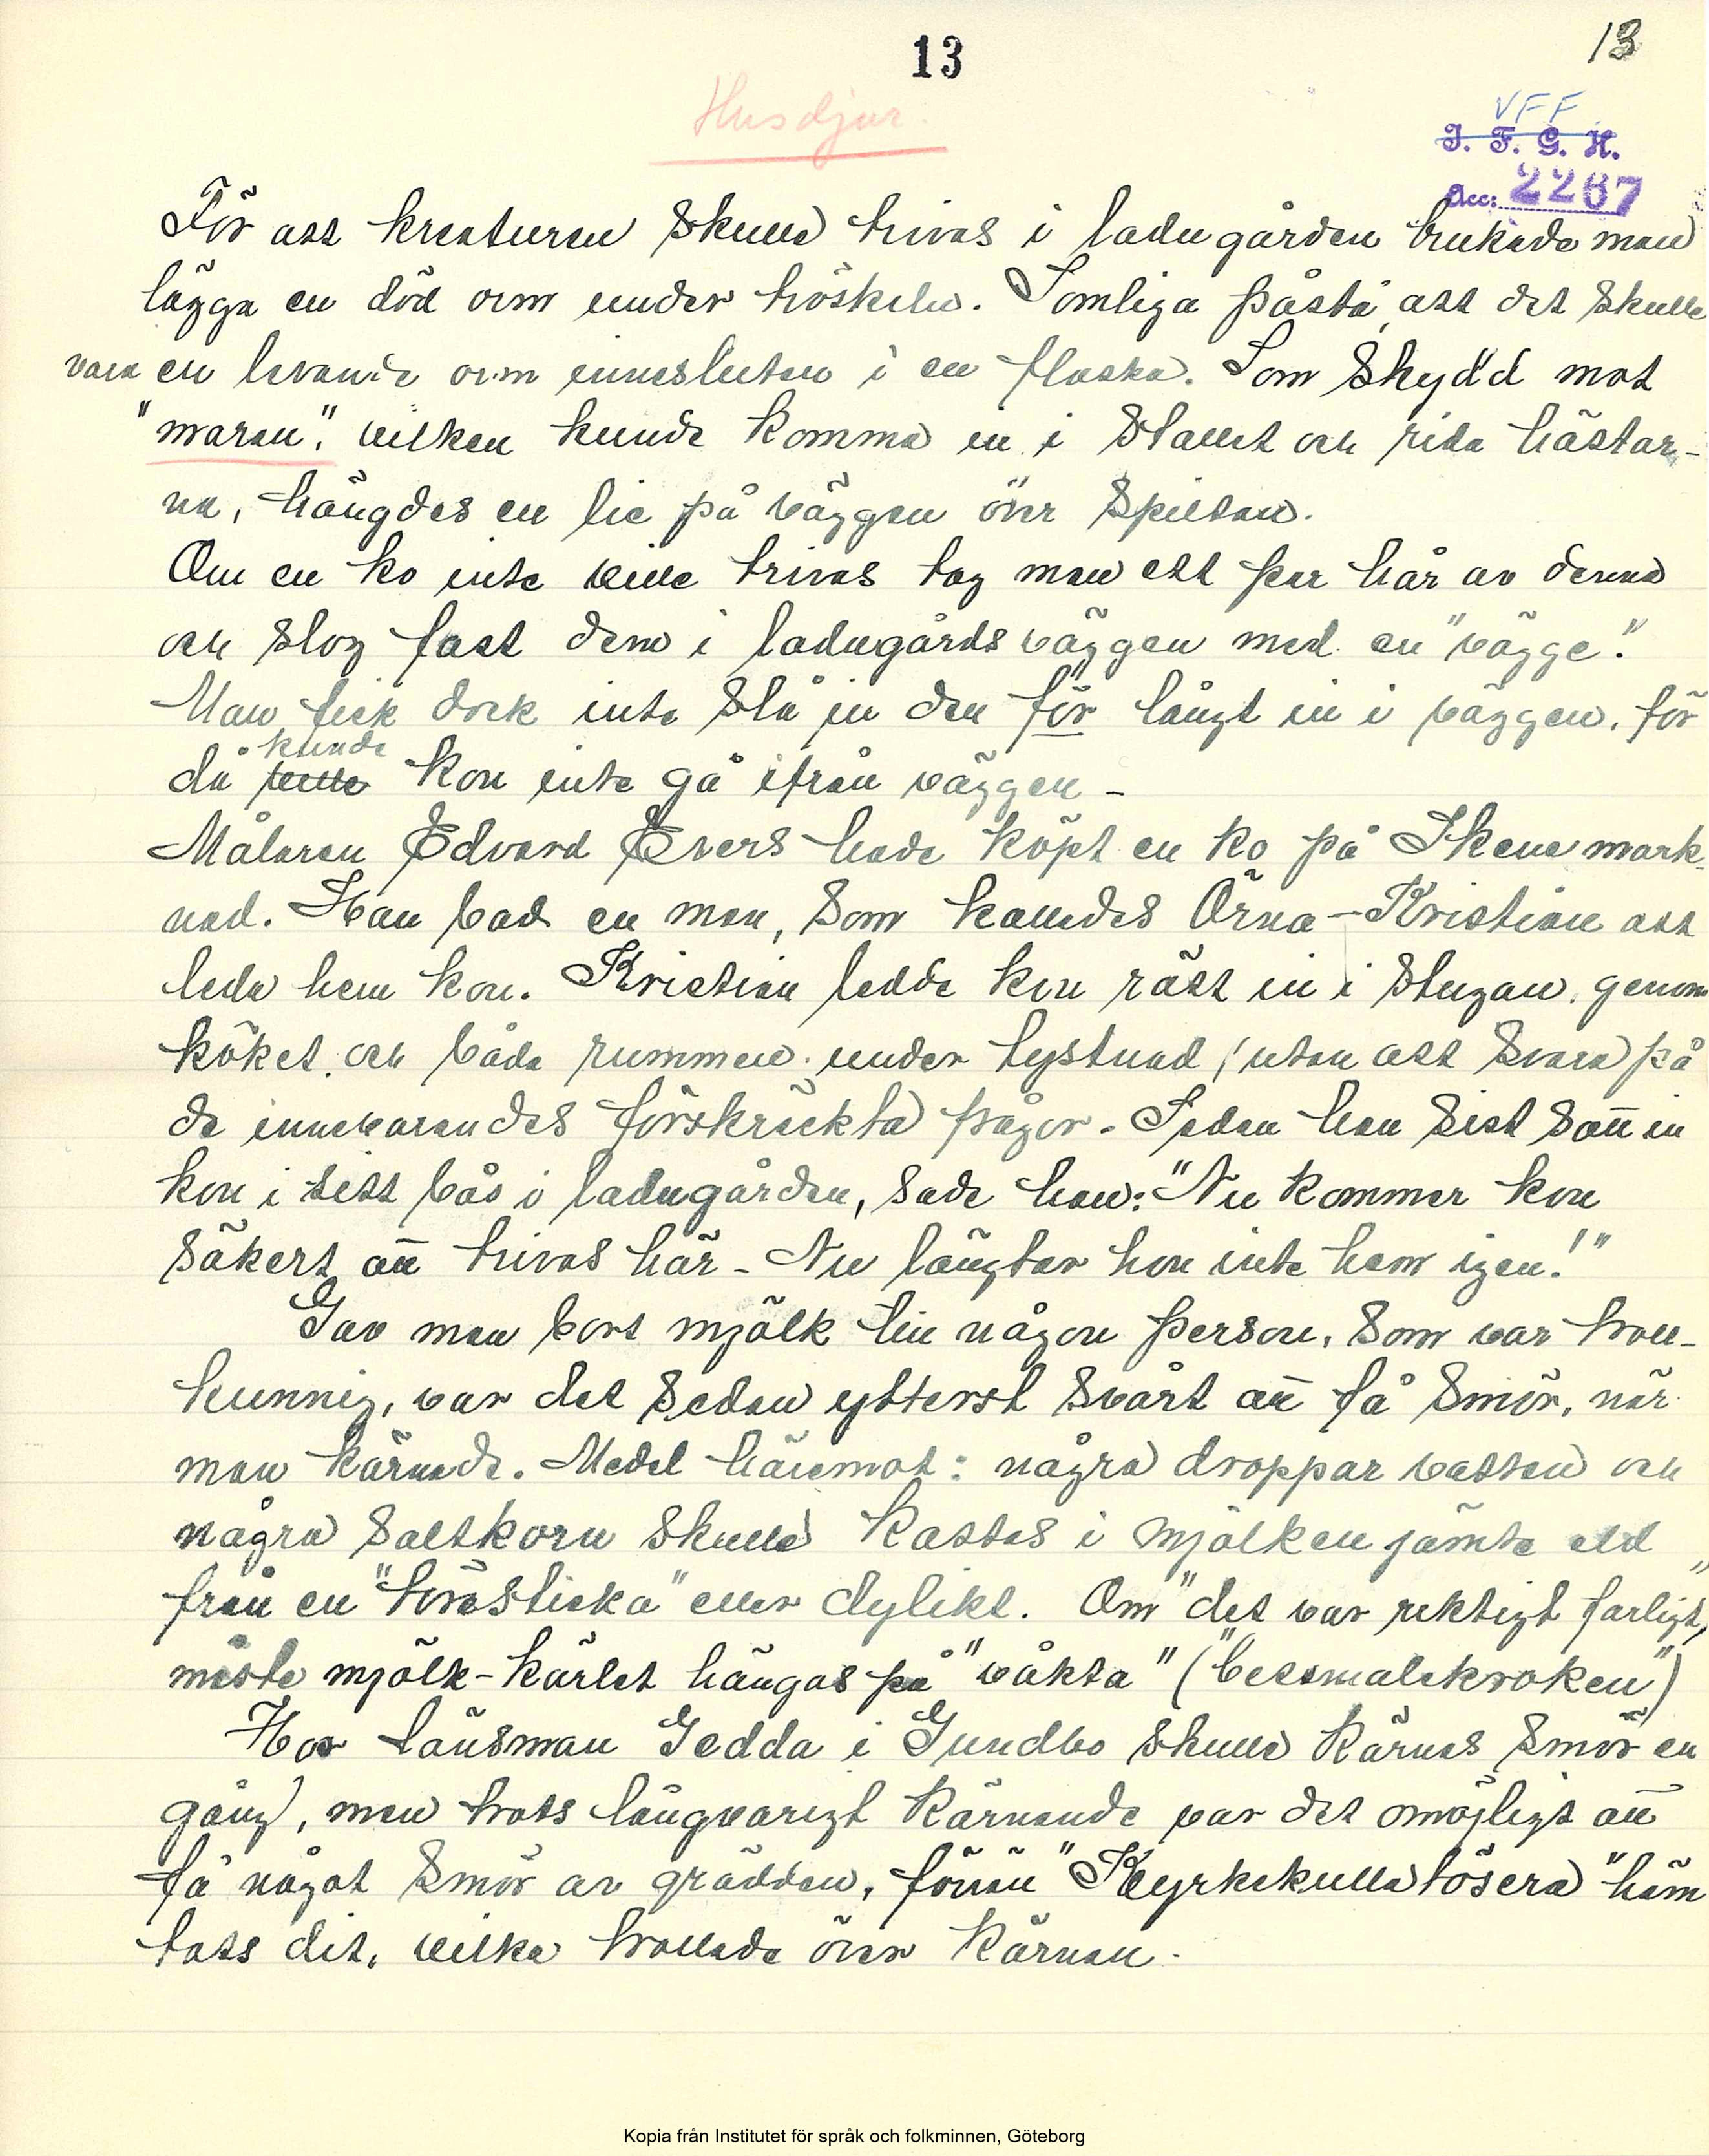 13
13
Husdjur.
VFF
I. F. G. H.
Acc: 2267
För att kreaturen skulle trivas i ladugården brukade man
lägga en död orm under tröskeln. Somliga påstå, att det skulle
vara en levande orm innesluten i en flaska. Som skydd mot
"maran", vilken kunde komma in i stallet och rida hästar-
na, hängdes en lie på väggen över spiltan.
Om en ko inte ville trivas tog man ett par hår av denna
och slog fast dem i ladugårdsväggen med en "vägge".
Man fick dock inte slå in den för långt in i väggen, för
då kunde kon inte gå ifrån väggen -
Målaren Edvard Evers hade köpt en ko på Skene mark-
nad. Han bad en man, som kallades Örna-Kristian att
leda hem kon. Kristian ledde kon rätt in i stugan, genom
köket och båda rummen under tystnad, utan att svara på
de innevarandes förskräckta frågor. Sedan han sist satt in
kon i sitt bås i ladugården, sade han: "Nu kommer kon
säkert att trivas här - Nu längtar hon inte hem igen!"
Gav man bort mjölk till någon person, som var troll-
kunnig, var det sedan ytterst svårt att få smör, när
man kärnade. Medel häremot: några droppar vatten och
några saltkorn skulle kastas i mjölken jämte eld
från en "trösticka" eller dylikt. Om "det var riktigt farligt",
måste mjölk-kärlet hängas på "våkta" ("bessmalskroken")
Hos länsman Gedda i Gundbo skulle kärnas smör en
gång, men trots långvarigt kärnande var det omöjligt att
få något smör av grädden, förrän "Kyrkekullatösera" häm
tats dit, vilka trollade över kärnan.
Kopia från Institutet för språk och folkminnen, Göteborg